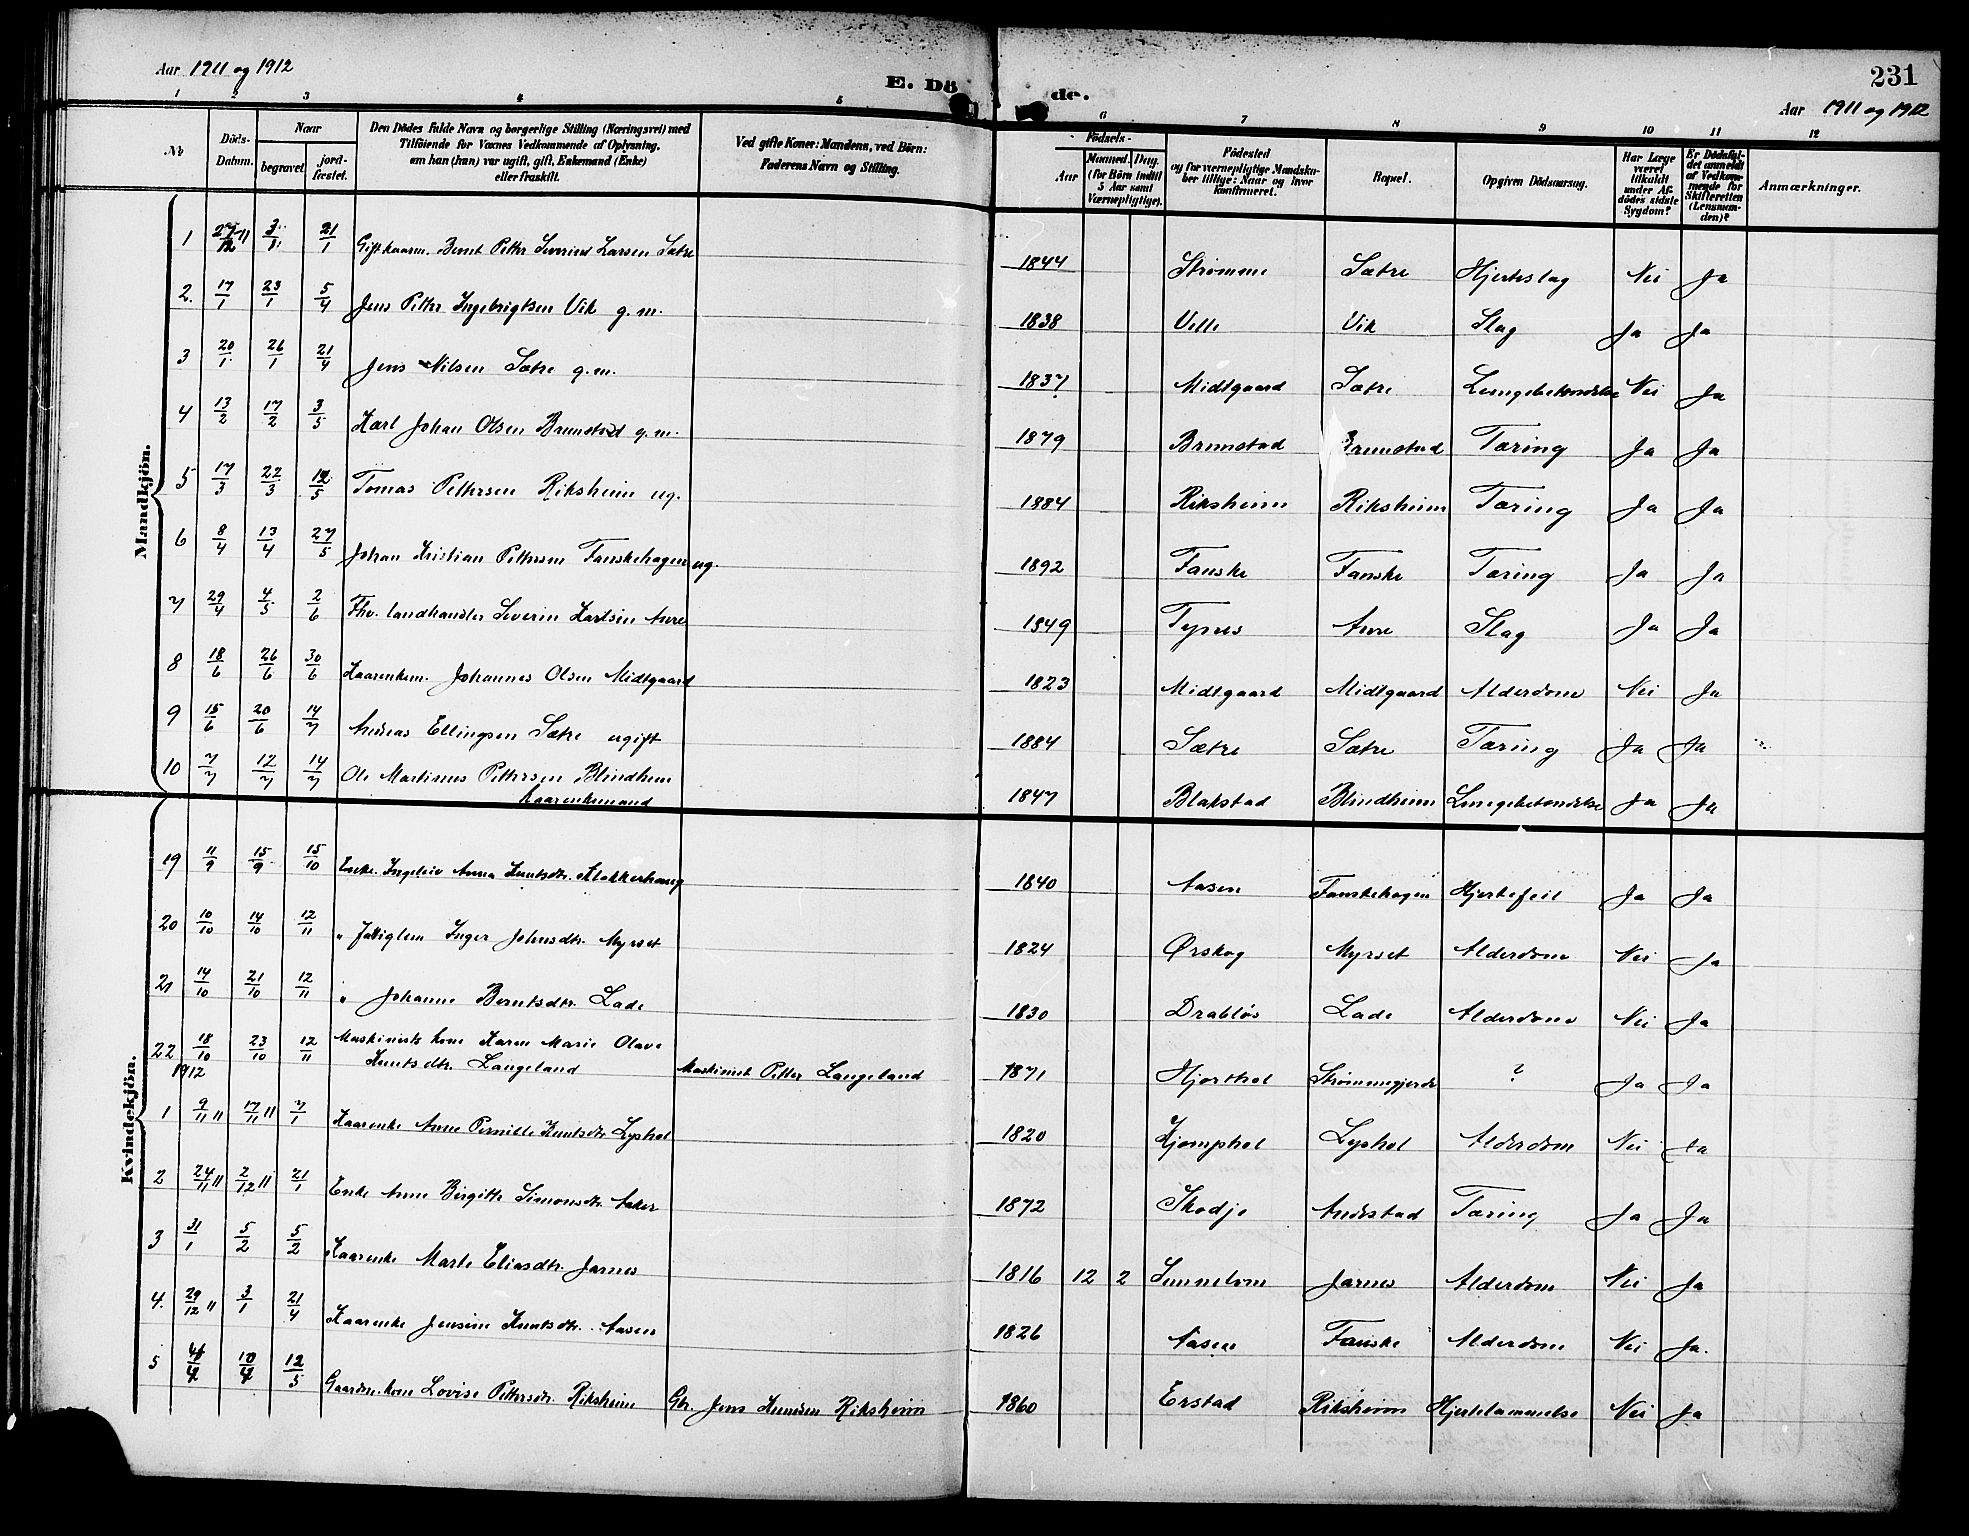 Aar 1911 og 1912
E. Dö de.
231
Aar 1911 og 1912
1 2 3 4 5 6 7 8 9 10 11 12
No Döds-Datum. Naar begravet jord-fæstet. Den Dödes fulde Navn og borgerlige Stilling (Næringsvei) med Tilföiende for Voxnes Vedkommende af Oplysning, om han (hun) var ugift, gift, Enkemand (Enke) eller fraskilt. Ved gifte Koner: Mandens, ved Börn: Faderens Navn og Stilling. Födsels- Aar Maaned. Dag. (for Börn indtil 5 Aar samt Værnepligtige). Födested og for værnepligtige Mandskaber tillige: Naar og hvor Konfirmeret. Bopæl. Opgiven Dödsaarsag. Har Læge været tilkaldt under Afdödes sidste Sygdom? Er Dödsfaldet anmeldt af Vedkommende for Skifteretten (Lensmanden)? Anmærkninger.
Mandkjön.
1 27/12 11 3/1 21/1 Gift kaarm. Bernt Petter Severin Larsen Sætre 1844 Strømme Sætre Hjerteslag Nei Ja
2. 17/1 23/1 5/4 Jens Petter Ingebrigtsen Vik g. m. 1838 Velle Vik Slag Ja Ja
3 20/1 26/1 21/4 Jens Nilsen Sætre g. m. 1837 Midtgaard Sætre Lungebetændelse Nei Ja
4 13/2 17/2 3/5 Karl Johan Olsen Brunstad g. m. 1879 Brunstad Brunstad Tæring Ja Ja
5 17/3 22/3 12/5 Tomas Pettersen Riksheim ug. 1884 Riksheim Riksheim Tæring Ja Ja
6 8/4 13/4 27/5 Johan Kristian Pettersen Fauskehagen ug. 1892 Fauske Fauske Tæring Ja Ja
7 29/4 4/5 2/6 Fhv. landhandler Severin Larsen Aure 1849 Tynes Aure Slag Ja Ja
8 18/6 26/6 30/6 Kaarenkem. Johannes Olsen Midtgaard 1823 Midtgaard Midtgaard Alderdom Nei Ja
9 15/6 20/6 14/7 Andreas Ellingsen Sætre ugift 1884 Sætre Sætre Tæring Ja Ja
10 7/7 12/7 14/7 Ole Martinus Pettersen Blindheim
Kaarenkemand 1847 Blakstad Blindheim Lungebetændelse Ja Ja
Kvindekjön.
19 11/9 15/9 15/10 Enke Ingeleiv Anna Knutsdtr. Klokkerhaug 1840 Aasen Fauskehagen Hjertefeil Ja Ja
20 10/10 14/10 12/11 " Fattiglem Inger Johnsdtr. Myrset 1824 Ørskog Myrset Alderdom Nei Ja
21 14/10 21/10 12/11 " Johanne Berntsdtr. Lade 1830 Drabløs Lade Alderdom Nei Ja
22 18/10 23/10 12/11 Maskinists kone Karen Marie Olave
Knutsdtr. Langeland Maskinist Petter Langeland 1871 Hjorthol Strømmegjerde ? Ja Ja
1912
1 9/11 11 17/11 11 7/1 Kaarenke Anne Pernille Knutsdtr Lyshol 1820 Kjemphol Lyshol Alderdom Nei Ja
2 24/11 11 2/12 11 21/1 Enke Anne Birgitte Simonsdtr. Aaker 1872 Skodje Andestad Tæring Ja Ja
3 31/1 5/2 5/2 Kaarenke Marte Eliasdtr. Jarnes 1816 12 2 Sunnelom Jarnes Alderdom Nei Ja
4. 29/12 11 3/1 21/4 Kaarenke Jensine Knutsdtr. Aasen 1826 Aasen Fauske Alderdom Nei Ja.
5 4/4 10/4 12/5 Gaardm. kone Lovise Pettersdtr. Riksheim Gbr. Jens Knudsen Riksheim 1860 Erstad Riksheim Hjertelammelse Nei Ja